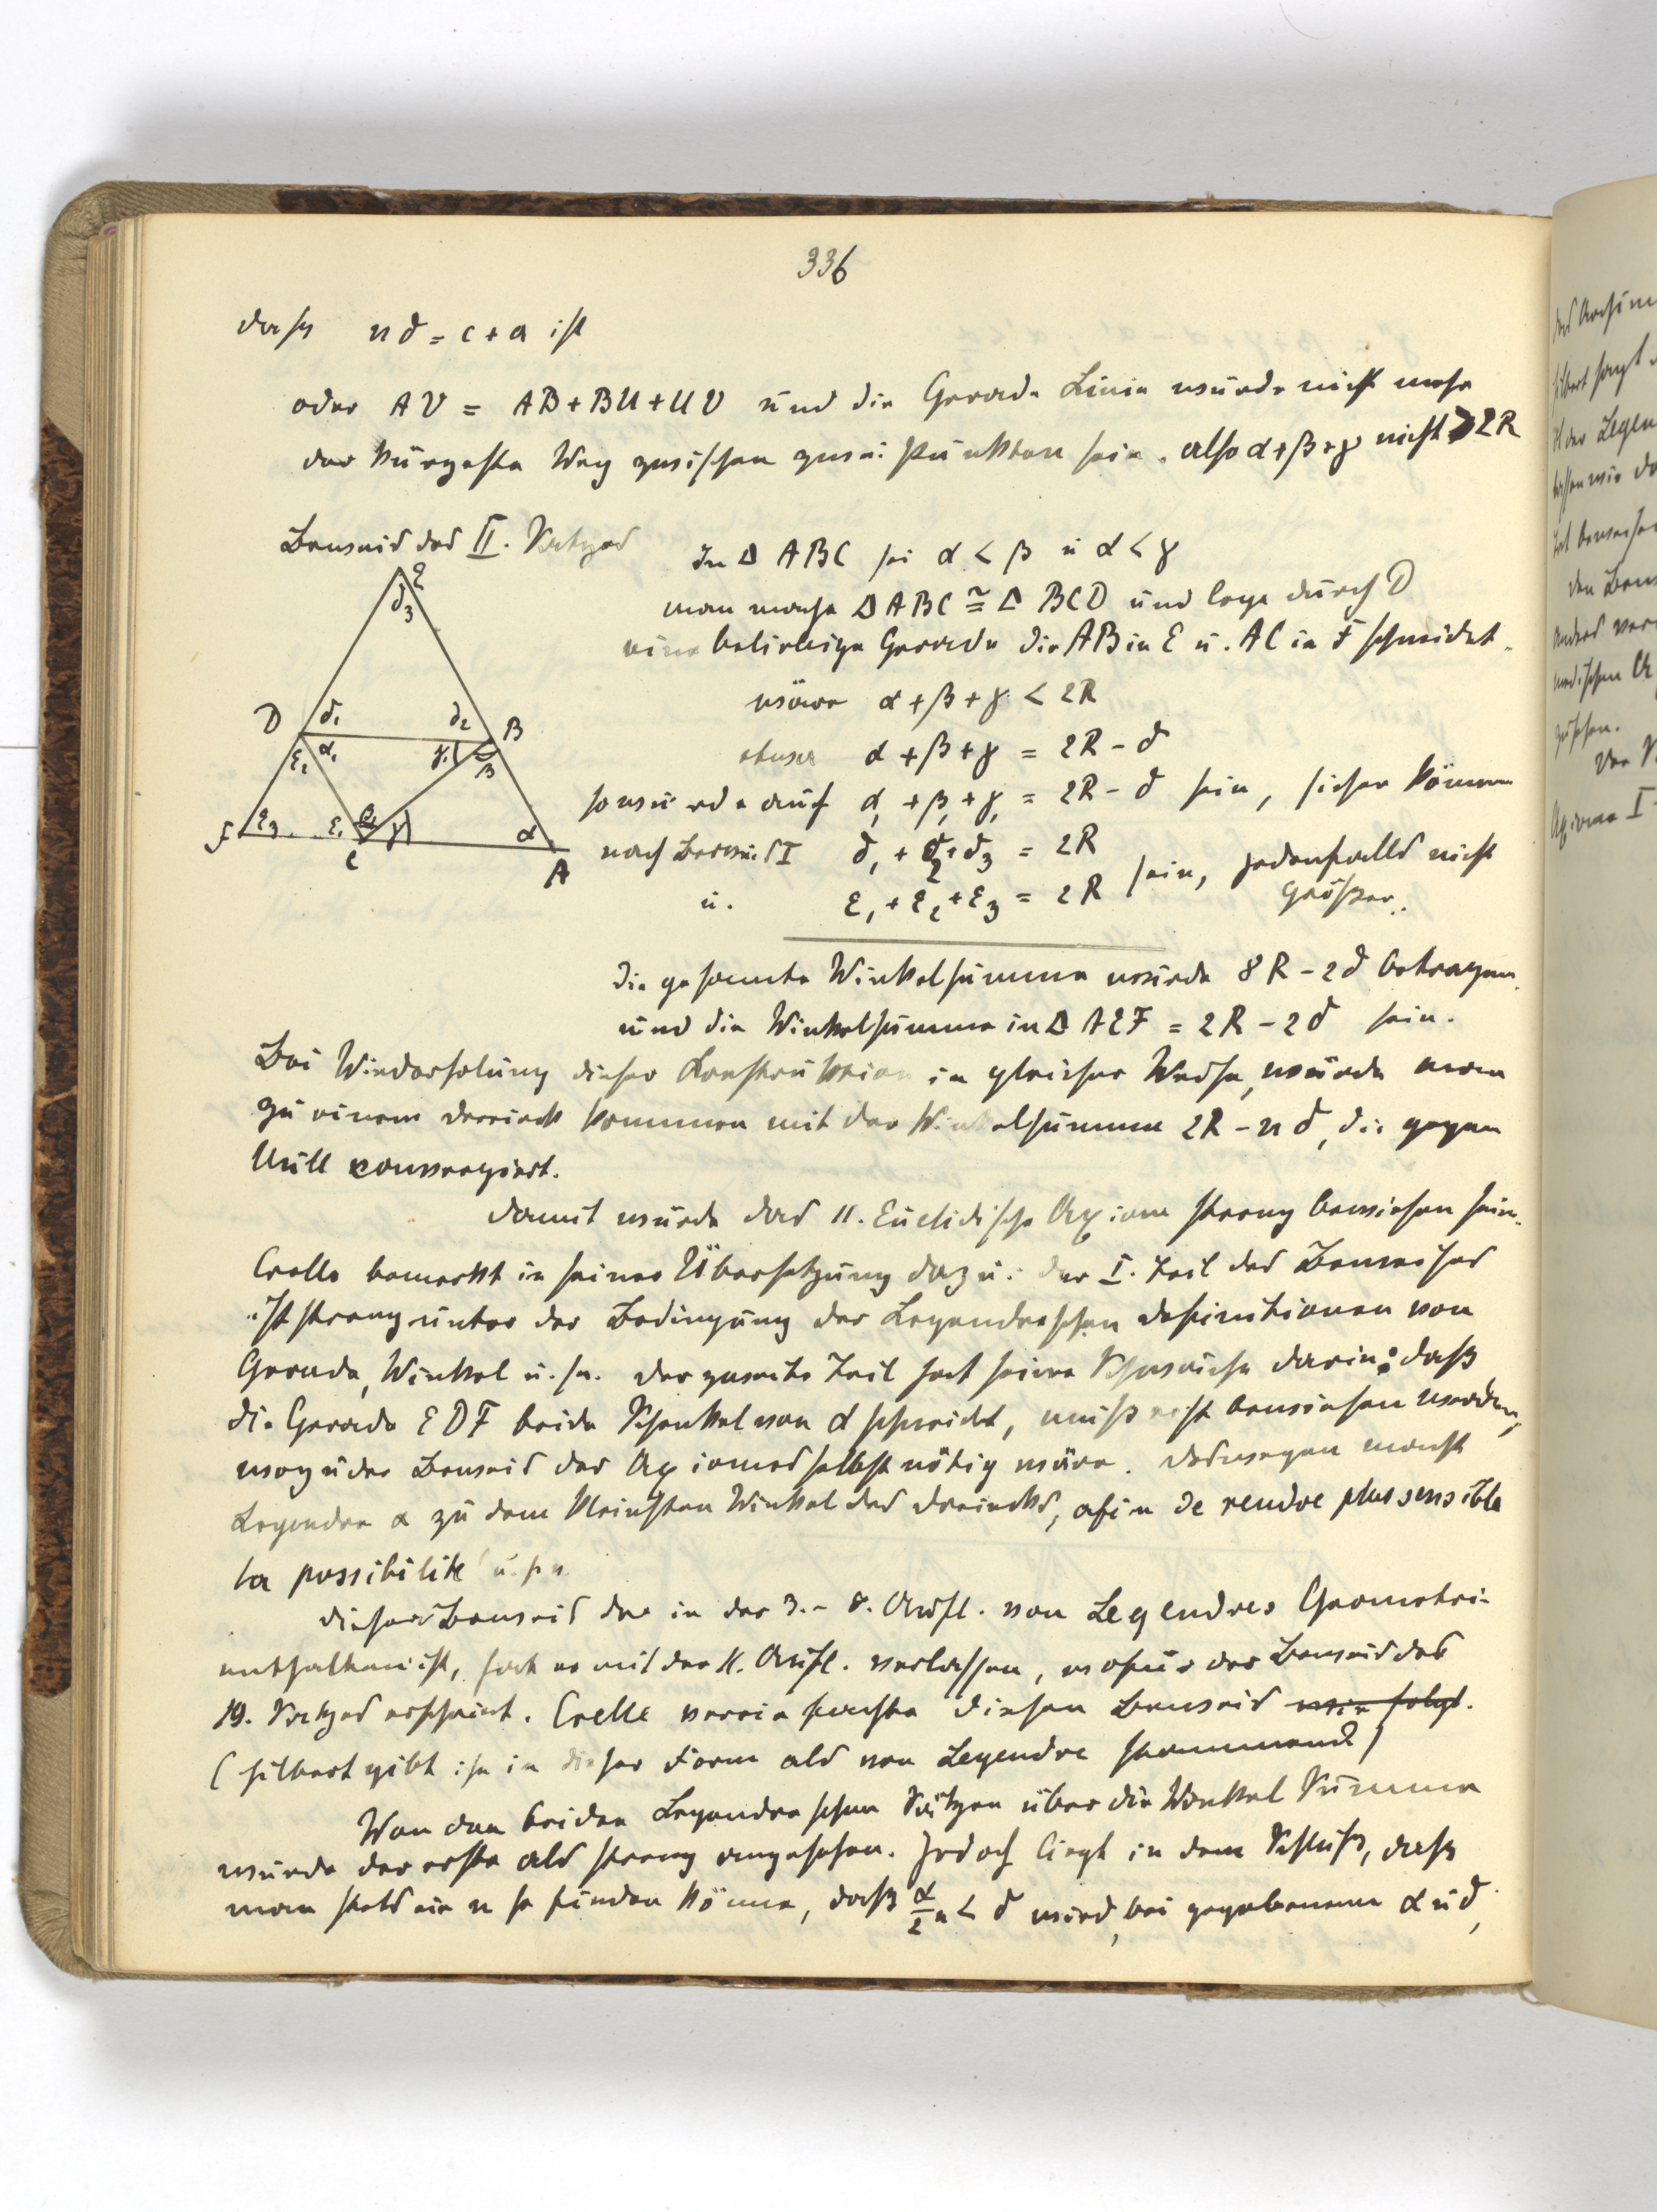 336
dass nd = c + a ist
oder AV = AB + BU + UV und die Gerade Linie würde nicht mehr
der kürzeste Weg zwischen zwei Punkten sein. also α + β + γ nicht > 2R
Beweis des II. Satzes
In Δ ABC sei α < β u α < γ
man mache Δ ABC ≅ Δ BCD und lege durch D
eine beliebige Gerade die AB in E u. AC in F schneidet.
wäre α + β + γ < 2R
etwa α + β + γ = 2R - δ
so würde auch α, + β, + γ, = 2R - δ sein, sicher können
nach Beweis I δ, + δ2 + δ3 = 2R
u. ε, + ε2 + ε3 = 2R sein, jedenfalls nicht
größer.
E
δ3
D δ, δ2 B
ε2 α, γ, β
F ε3 ε, β, γ α
C A
Die gesamte Winkelsumme würde 8R - 2δ betragen
und die Winkelsumme in Δ AEF = 2R - 2δ sein.
Bei Wiederholung dieser Konstruktion in gleicher Weise, würde man
zu einem Dreieck kommen mit der Winkelsumme 2R - nδ, die gegen
Null convergiert.
Damit würde das 11. Euclidische Axiom streng bewiesen sein.
Crelle bemerkt in seiner Übersetzung dazu: der I. Teil des Beweises
ist streng unter der Bedingung der Legendreschen Definitionen von
Gerade, Winkel u.sw. Der zweite Teil hat seine Schwäche darin: daß
die Gerade EDF beide Schenkel von α schneidet, muß erst bewiesen werden,
wozu der Beweis des Axiomes selbst nötig wäre. Deswegen macht
Legendre α zu dem kleinsten Winkel des Dreiecks, afin de rendre plus sensible
la possibilité u.sw.
Dieser Beweis der in der 3.- 8. Aufl. von Legendres Geometrie
enthalten ist, hat er mit der 11. Aufl. verlassen, wofür der Beweis des
19. Satzes erscheint. Crelle vereinfachte diesen Beweis wie folgt.
(Hilbert gibt ihn in dieser Form als von Legendre stammend)
Von den beiden Legendreschen Sätzen über die Winkel Summe
wurde der erste als streng angesehen. Jedoch liegt in dem Schluß, daß
man stets ein n so finden könne, daß α/2ⁿ < δ wird, bei gegebenem α u δ,